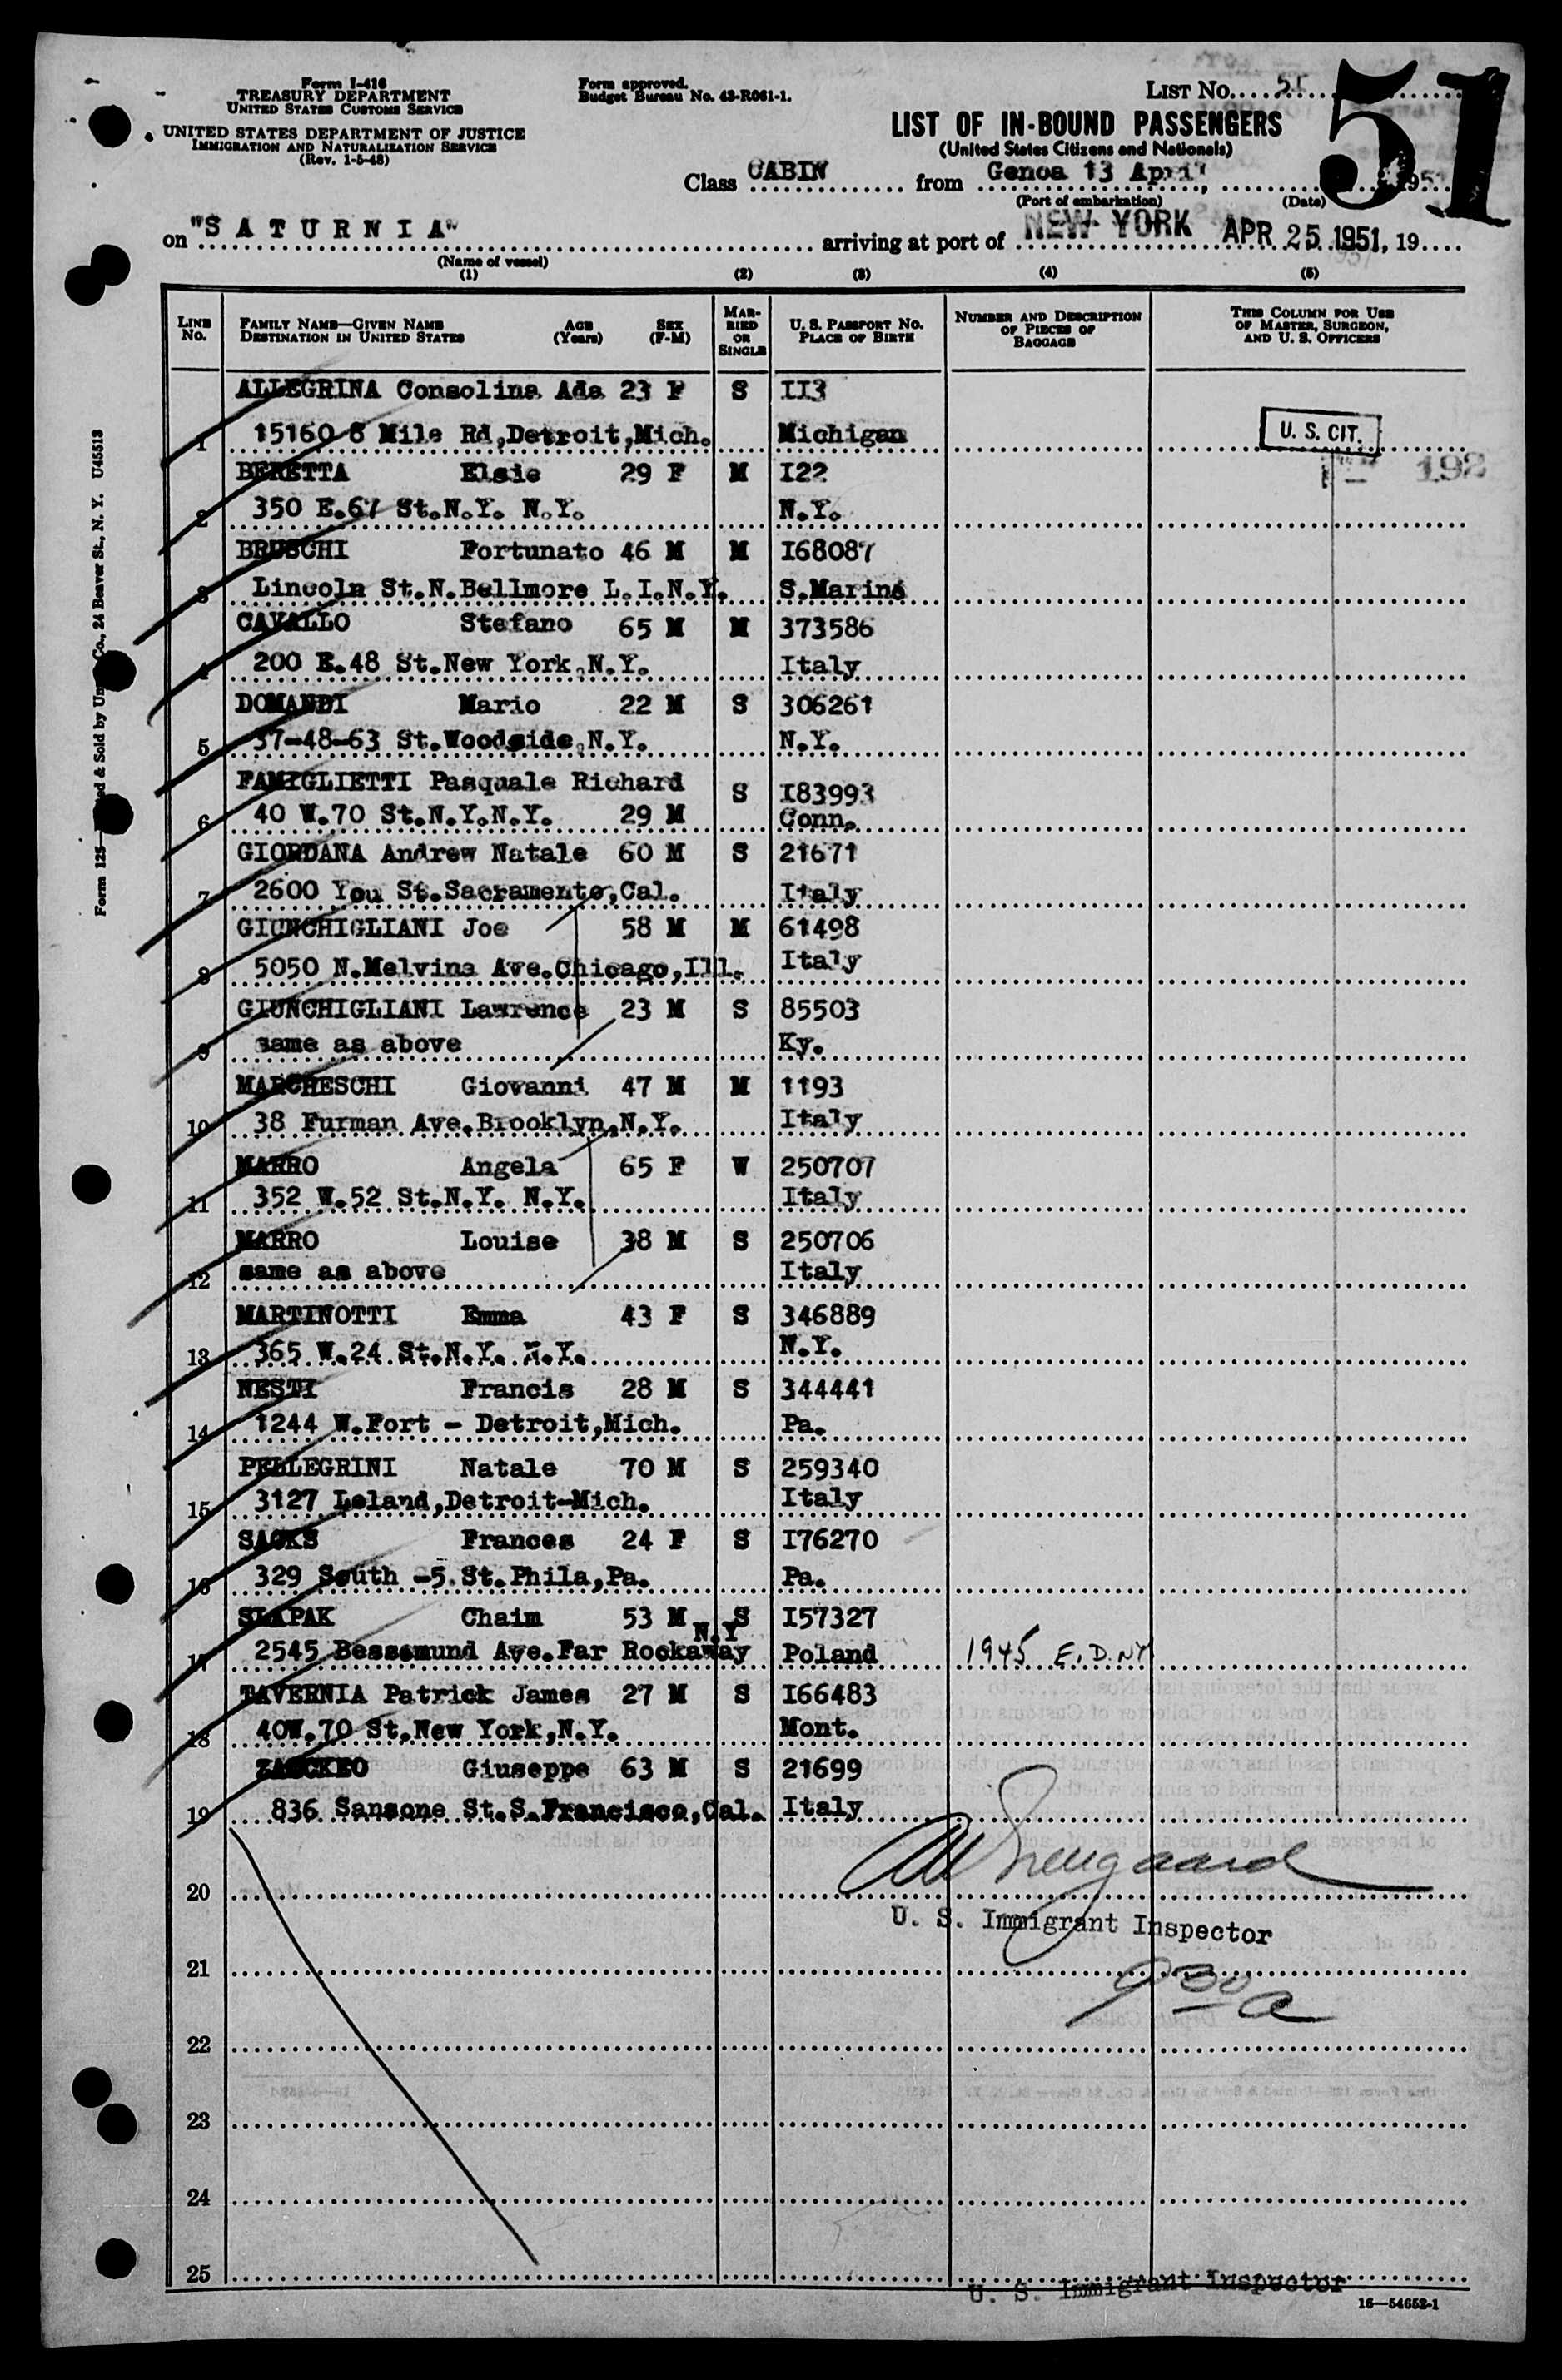 Form I-416
TREASURY DEPARTMENT
UNITED STATES CUSTOMS SERVICE
UNITED STATES DEPARTMENT OF JUSTICE
IMMIGRATION AND NATURALIZATION SERVICE
(Rev. 1-5-48)
Form approved.
Budget Bureau No. 43-R061-1.
LIST No. 51
51
LIST OF IN-BOUND PASSENGERS
(United States Citizens and Nationals)
Class CABIN from Genoa 13 April, 1951
(Port of embarkation) (Date)
on "SATURNIA" arriving at port of NEW YORK APR 25 1951, 19
(Name of vessel)
(1) (2) (3) (4) (5)
LINE No. FAMILY NAME—GIVEN NAME DESTINATION IN UNITED STATES AGE (Years) SEX (F-M) MARRIED OR SINGLE U. S. PASSPORT No. PLACE OF BIRTH NUMBER AND DESCRIPTION OF PIECES OF BAGGAGE THIS COLUMN FOR USE OF MASTER, SURGEON, AND U. S. OFFICERS
ALLEGRINA Consolina Ada 23 F S II3
1 15160 8 Mile Rd,Detroit,Mich. Michigan U. S. CIT.
192
BERETTA Elsie 29 F M I22
2 350 E.67 St.N.Y. N.Y. N.Y.
BRUSCHI Fortunato 46 M M I68087
3 Lincoln St.N.Bellmore L.I.N.Y. S.Marino
CAVALLO Stefano 65 M M 373586
4 200 E.48 St.New York,N.Y. Italy
DOMANDI Mario 22 M S 306261
5 37-48-63 St.Woodside,N.Y. N.Y.
FAMIGLIETTI Pasquale Richard S I83993
6 40 W.70 St.N.Y.N.Y. 29 M Conn.
GIORDANA Andrew Natale 60 M S 21671
7 2600 You St.Sacramento,Cal. Italy
GIUNCHIGLIANI Joe 58 M M 61498
8 5050 N.Melvina Ave.Chicago,Ill. Italy
GIUNCHIGLIANI Lawrence 23 M S 85503
9 same as above Ky.
MARCHESCHI Giovanni 47 M M 1193
10 38 Furman Ave.Brooklyn,N.Y. Italy
MARRO Angela 65 F W 250707
11 352 W.52 St.N.Y. N.Y. Italy
MARRO Louise 38 M S 250706
12 same as above Italy
MARTINOTTI Emma 43 F S 346889
13 365 W.24 St.N.Y. N.Y. N.Y.
NESTI Francis 28 M S 344441
14 1244 W.Fort - Detroit,Mich. Pa.
PELLEGRINI Natale 70 M S 259340
15 3127 Leland,Detroit-Mich. Italy
SACKS Frances 24 F S I76270
16 329 South -5.St.Phila,Pa. Pa.
SLAPAK Chaim 53 M S I57327
N.Y
17 2545 Bessemund Ave.Far Rockaway Poland 1945 E.D.NY
TAVERNIA Patrick James 27 M S I66483
18 40W.70 St.New York,N.Y. Mont.
Giuseppe 63 M S 21699
19 836 Sansone St.S.Francisco,Cal. Italy
20
U. S. Immigrant Inspector
21
9 30 a
22
23
24
25
U. S. Immigrant Inspector
16—54652-1
Co., 24 Beaver St., N. Y. U45513